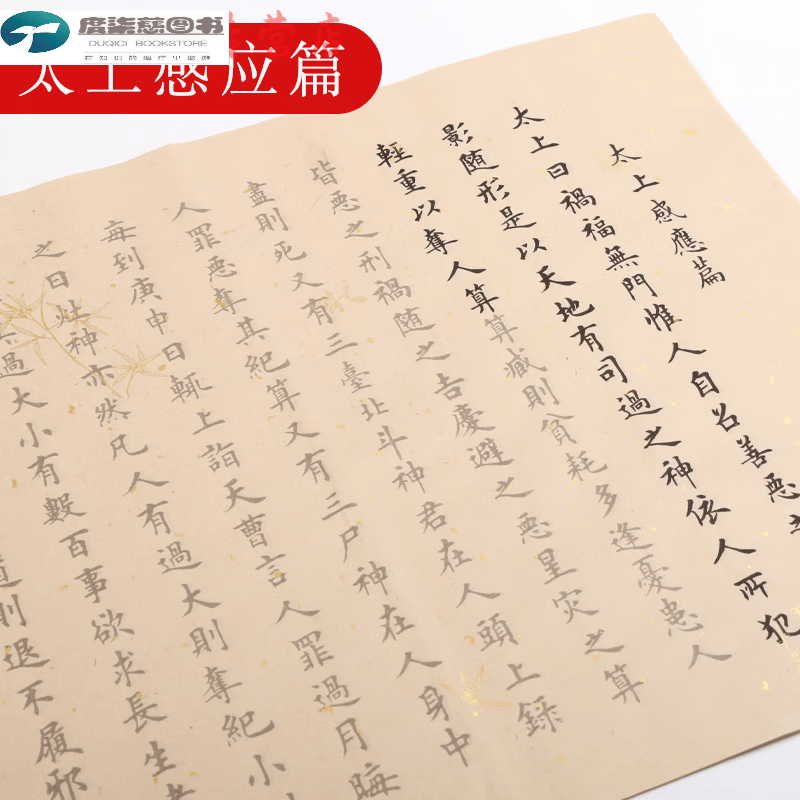 度柒慈图书
DUQICI BOOKSTORE
在知识的海洋里遨游
营店
太上感应篇
太上感應篇
太上曰禍福無門惟人自召善惡
影随形是以天地有司過之神依人所犯
輕重以奪人算算减則貧耗多逢憂患人
皆惡之刑禍随之吉慶避之惡星灾之算
盡則死又有三臺北斗神君在人頭上録
人罪惡奪其紀算又有三尸神在人身中
每到庚申日輒上詣天曹言人罪過月晦
之日灶神亦然凡人有過大則奪紀小
過大小有數百事欲求長生
道則退不履邪